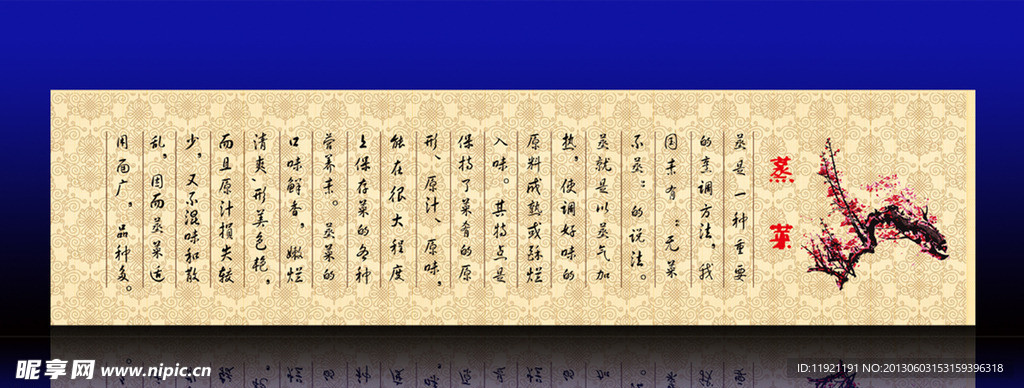 蒸菜
蒸是一种重要
的烹调方法，我
国素有：：无菜
不蒸：：的说法。
蒸就是以蒸气加
热，使调好味的
原料成熟或酥烂
入味。其特点是
保持了菜肴的原
形、原汁、原味，
能在很大程度
上保存菜的各种
营养素。蒸菜的
口味鲜香，嫩烂
清爽，形美色艳，
而且原汁损失较
少，又不混味和散
乱，因而蒸菜适
用面广，品种多。
昵享网 www.nipic.cn
ID:11921191 NO:20130603153159396318